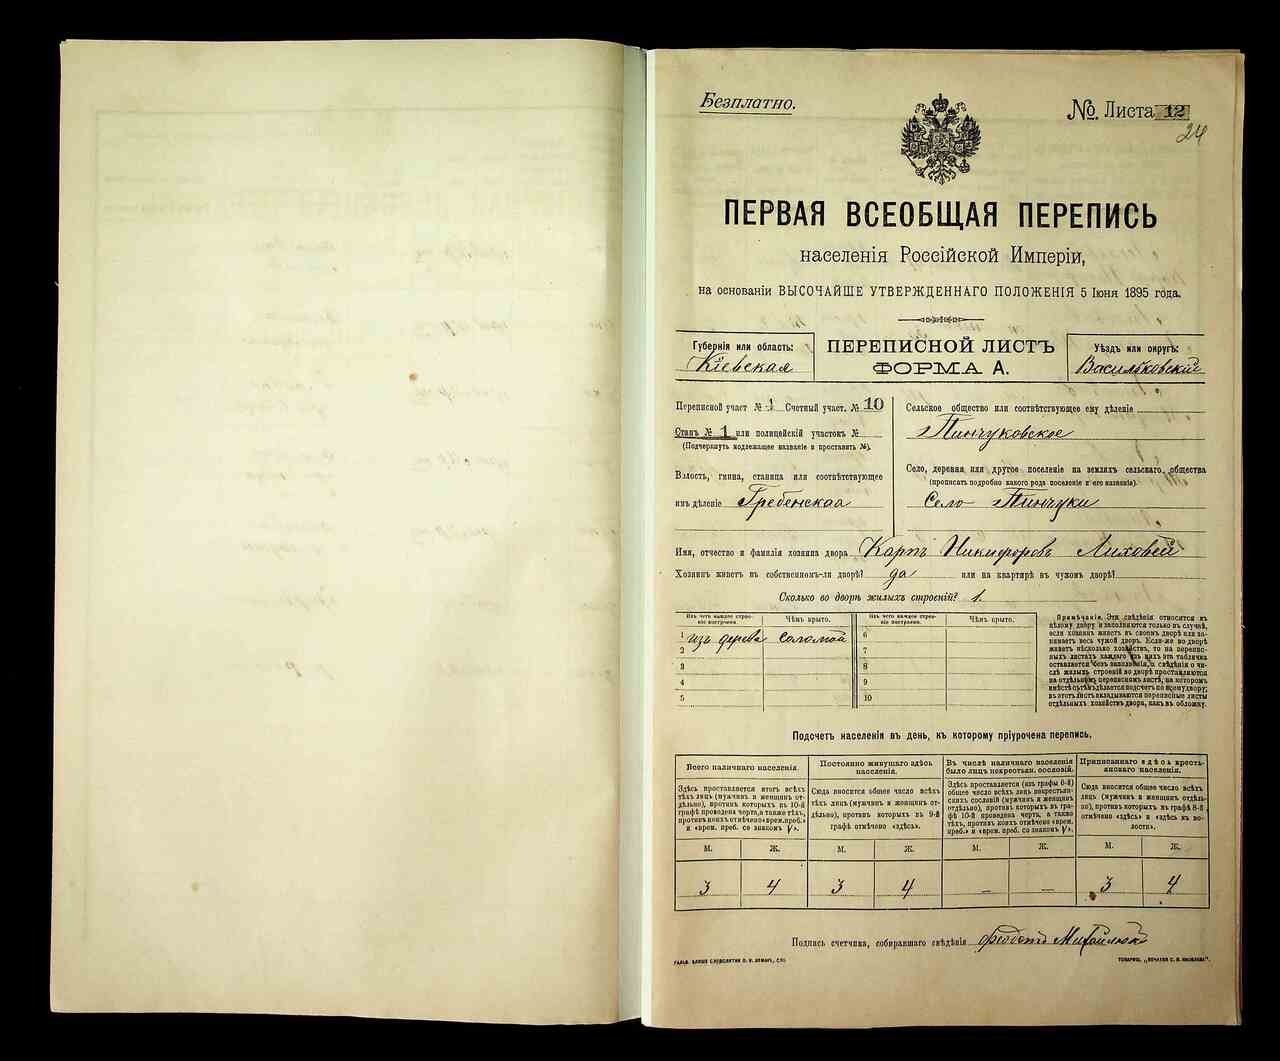 Безплатно.
№ Листа 12
24
ПЕРВАЯ ВСЕОБЩАЯ ПЕРЕПИСЬ
населенія Россійской Имперіи,
на основаніи ВЫСОЧАЙШЕ УТВЕРЖДЕННАГО ПОЛОЖЕНІЯ 5 Іюня 1895 года.
Губернія или область:
Кіевская
ПЕРЕПИСНОЙ ЛИСТЪ
ФОРМА А.
Уѣздъ или округъ:
Васильковскій
Переписной участ. № 1 Счетный участ. № 10
Станъ № 1 или полицейскій участокъ №
(Подчеркнуть подлежащее названіе и проставить №).
Волость, гмина, станица или соотвѣтствующее
имъ дѣленіе Гребенская
Сельское общество или соотвѣтствующее ему дѣленіе
Пинчуковское
Село, деревня или другое поселеніе на земляхъ сельскаго общества
(прописать подробно какого рода поселеніе и его названіе).
Село Пинчуки
Имя, отчество и фамилія хозяина двора Карпъ Никифоровъ Лиховей
Хозяинъ живетъ въ собственномъ-ли дворѣ? да или на квартирѣ въ чужомъ дворѣ?
Сколько во дворѣ жилыхъ строеній? 1.
Изъ чего каждое строеніе построено. Чѣмъ крыто. Изъ чего каждое строеніе построено. Чѣмъ крыто.
1 изъ дерева соломой 6
2 7
3 8
4 9
5 10
Примѣчаніе. Эти свѣдѣнія относятся къ
цѣлому двору и заполняются только въ случаѣ,
если хозяинъ живетъ въ своемъ дворѣ или занимаетъ
весь чужой дворъ. Если-же во дворѣ
живетъ нѣсколько хозяйствъ, то на переписныхъ
листахъ каждаго изъ нихъ эта табличка
оставляется безъ заполненія, а свѣдѣнія о числѣ
жилыхъ строеній во дворѣ проставляются
на отдѣльномъ переписномъ листѣ, на которомъ
вмѣстѣ съ тѣмъ дѣлается подсчетъ по всему двору;
въ этотъ листъ вкладываются переписные листы
отдѣльныхъ хозяйствъ двора, какъ въ обложку.
Подсчетъ населенія въ день, къ которому пріурочена перепись.
Всего наличнаго населенія.
Здѣсь проставляется итогъ всѣхъ
тѣхъ лицъ (мужчинъ и женщинъ отдѣльно),
противъ которыхъ въ 10-й
графѣ проведена черта, а также тѣхъ,
противъ коихъ отмѣчено «врем. преб.»
и «врем. преб. со знакомъ V».
Постоянно живущаго здѣсь
населенія.
Сюда вносится общее число всѣхъ
тѣхъ лицъ (мужчинъ и женщинъ отдѣльно),
противъ которыхъ въ 9-й
графѣ отмѣчено «здѣсь».
Въ числѣ наличнаго населенія
было лицъ некрестьян. сословій.
Здѣсь проставляется (изъ графы 6-й)
общее число всѣхъ лицъ некрестьянскихъ
сословій (мужчинъ и женщинъ
отдѣльно), противъ которыхъ въ графѣ
10-й проведена черта, а также
тѣхъ, противъ коихъ отмѣчено «врем.
преб.» и «врем. преб. со знакомъ V».
Приписаннаго здѣсь крестьянскаго
населенія.
Сюда вносится общее число всѣхъ
лицъ (мужчинъ и женщинъ отдѣльно),
противъ которыхъ въ графѣ 8-й
отмѣчено «здѣсь» и «здѣсь въ волости».
М. Ж. М. Ж. М. Ж. М. Ж.
3 4 3 4 — — 3 4
Подпись счетчика, собиравшаго свѣдѣнія Феодотъ Михайлюк